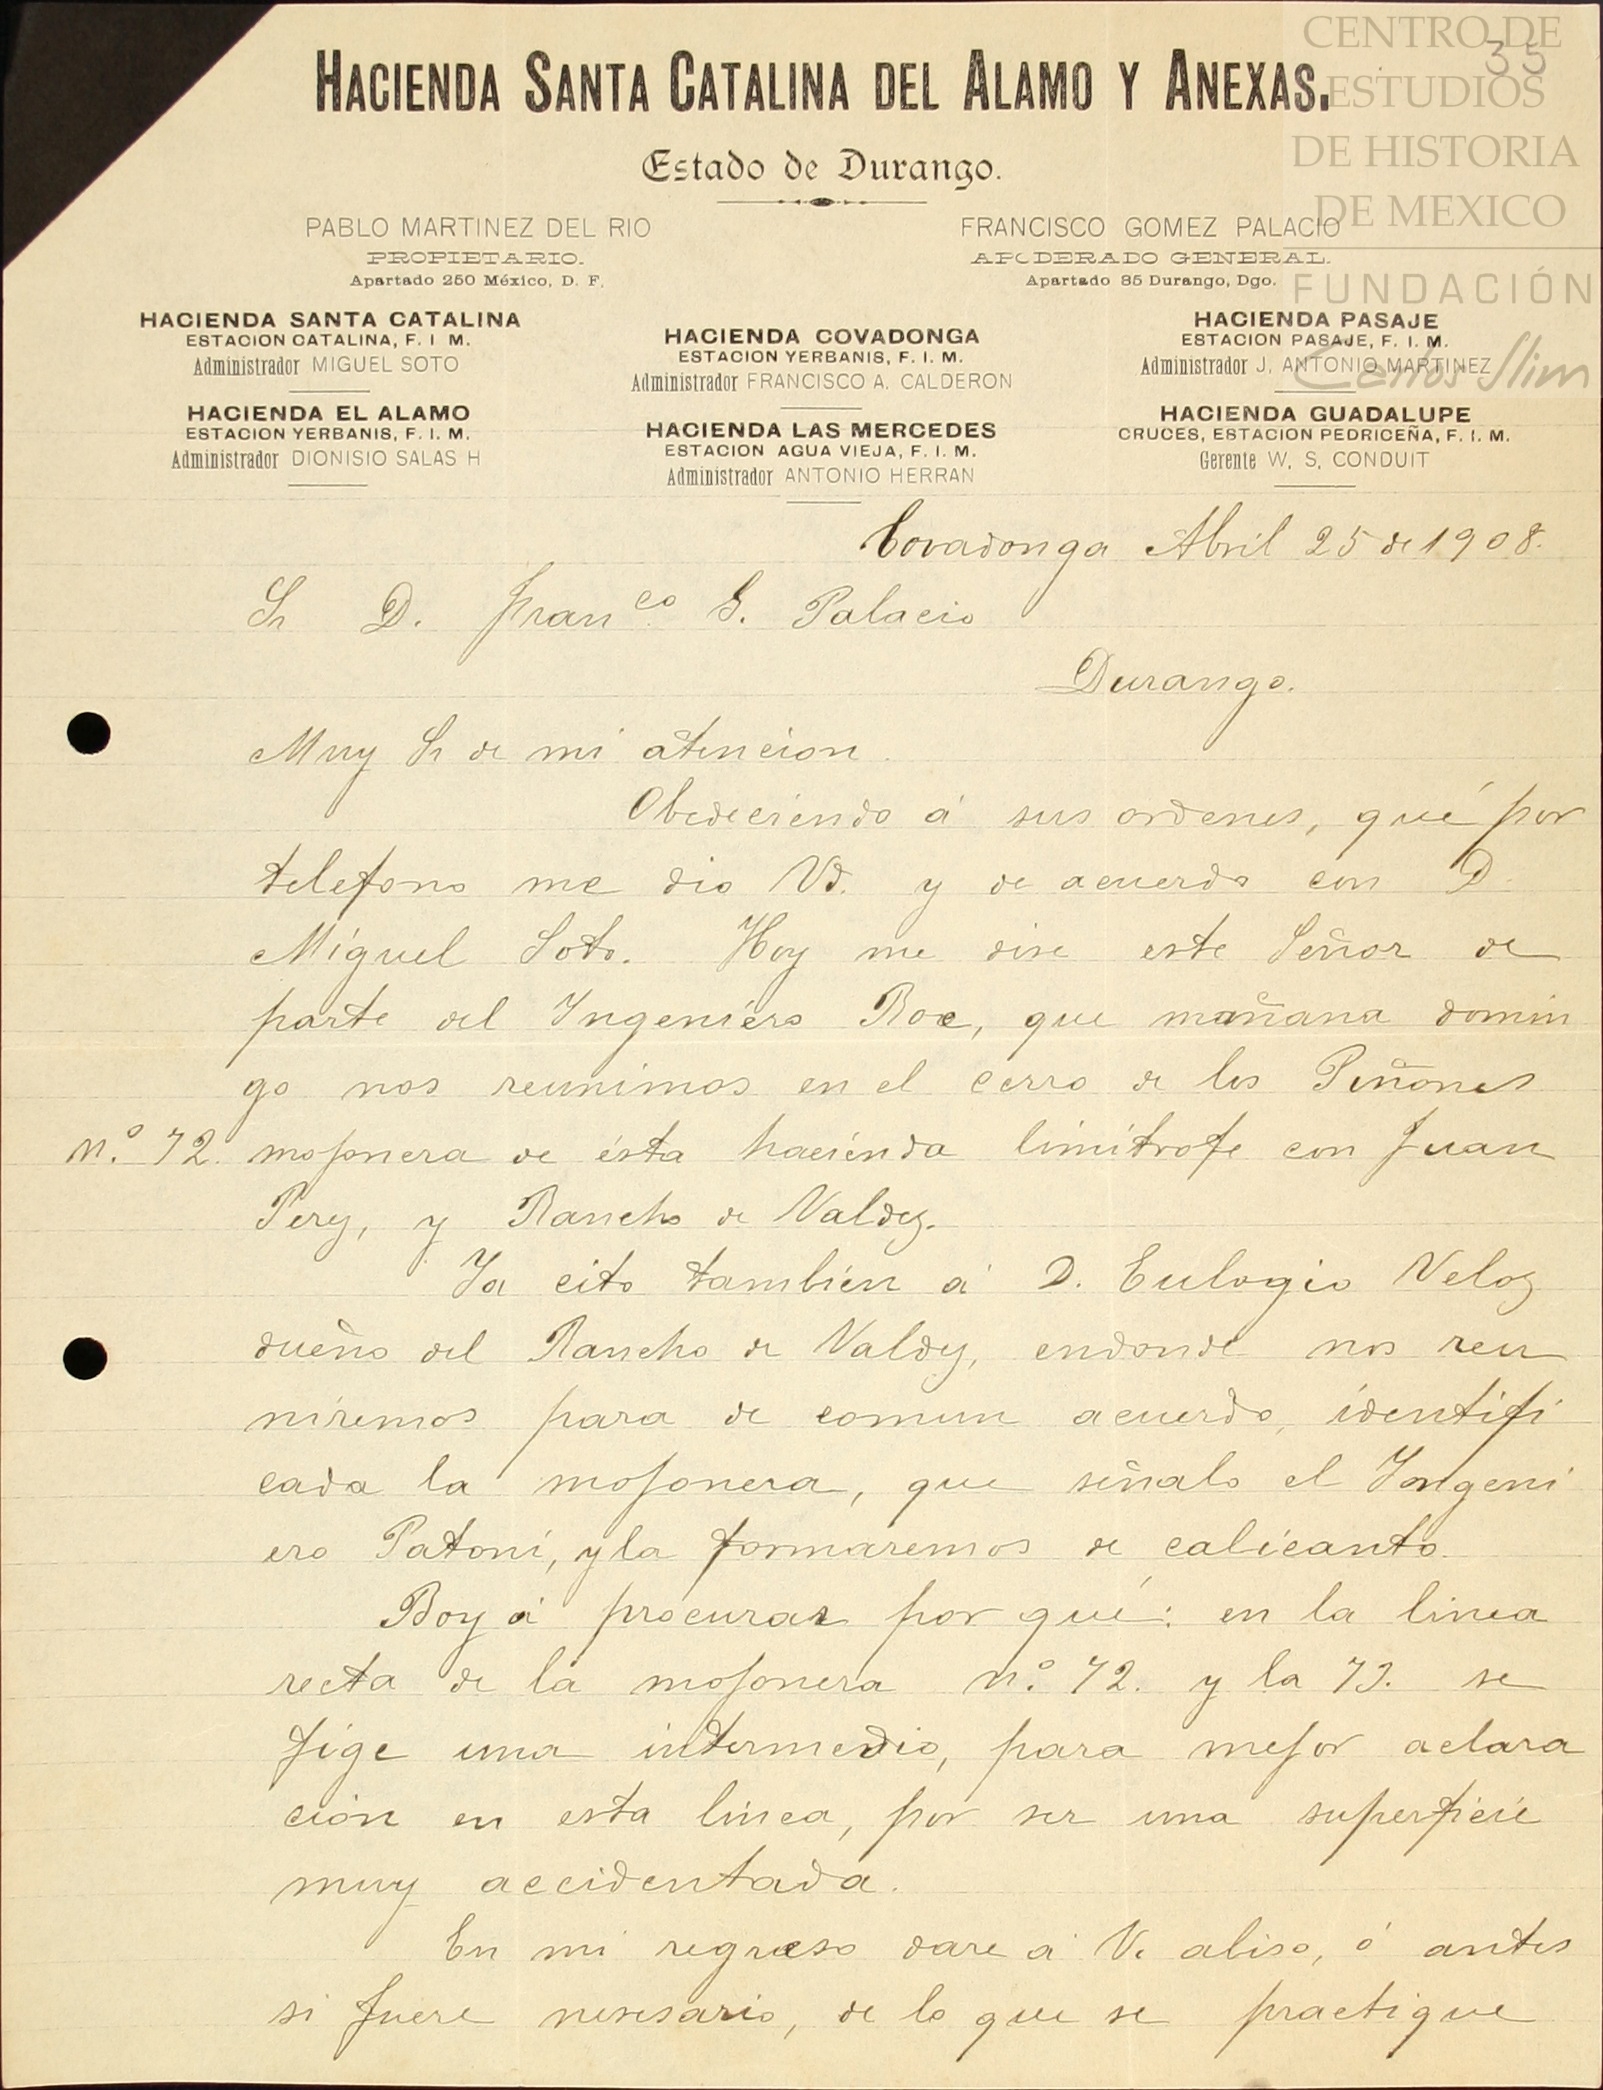 CENTRO DE
ESTUDIOS
DE HISTORIA
DE MEXICO
FUNDACIÓN
Carlos Slim
35
HACIENDA SANTA CATALINA DEL ALAMO Y ANEXAS.
Estado de Durango.
PABLO MARTINEZ DEL RIO
PROPIETARIO.
Apartado 250 México, D. F.
FRANCISCO GOMEZ PALACIO
APODERADO GENERAL.
Apartado 85 Durango, Dgo.
HACIENDA SANTA CATALINA
ESTACION CATALINA, F. I M.
Administrador MIGUEL SOTO
HACIENDA EL ALAMO
ESTACION YERBANIS, F. I. M.
Administrador DIONISIO SALAS H
HACIENDA COVADONGA
ESTACION YERBANIS, F. I. M.
Administrador FRANCISCO A. CALDERON
HACIENDA LAS MERCEDES
ESTACION AGUA VIEJA, F. I. M.
Administrador ANTONIO HERRAN
HACIENDA PASAJE
ESTACION PASAJE, F. I. M.
Administrador J. ANTONIO MARTINEZ
HACIENDA GUADALUPE
CRUCES, ESTACION PEDRICEÑA, F. I. M.
Gerente W. S. CONDUIT
Covadonga Abril 25 de 1908.
Sr D. Franco. G. Palacio
Durango.
Muy Sr de mi atencion.
Obedeciendo á sus ordenes, qué por
telefono me dio Vd. y de acuerdo con D.
Miguel Soto. Hoy me dise este Señor de
parte del Ingeniero Roe, que mañana domin
go nos reunimos en el cerro de los Piñones
n.° 72. mojonera de ésta hacienda limitrofe con Juan
Perez, y Rancho de Valdez.
Ya cito tambien á D. Eulogio Veloz
dueño del Rancho de Valdez, endonde nos reu
niremos para de comun acuerdo, identifi
cada la mojonera, que señalo el Yngeni
ero Patoni, y la formaremos de calicanto.
Boy á procurar por qué: en la linea
recta de la mojonera n.° 72. y la 73. se
fige una intermedio, para mejor aclara
ción en esta linea, por ser una superficie
muy accidentada.
En mi regreso dare á V. abiso, ó antes
si fuere nesesario, de lo que se practique